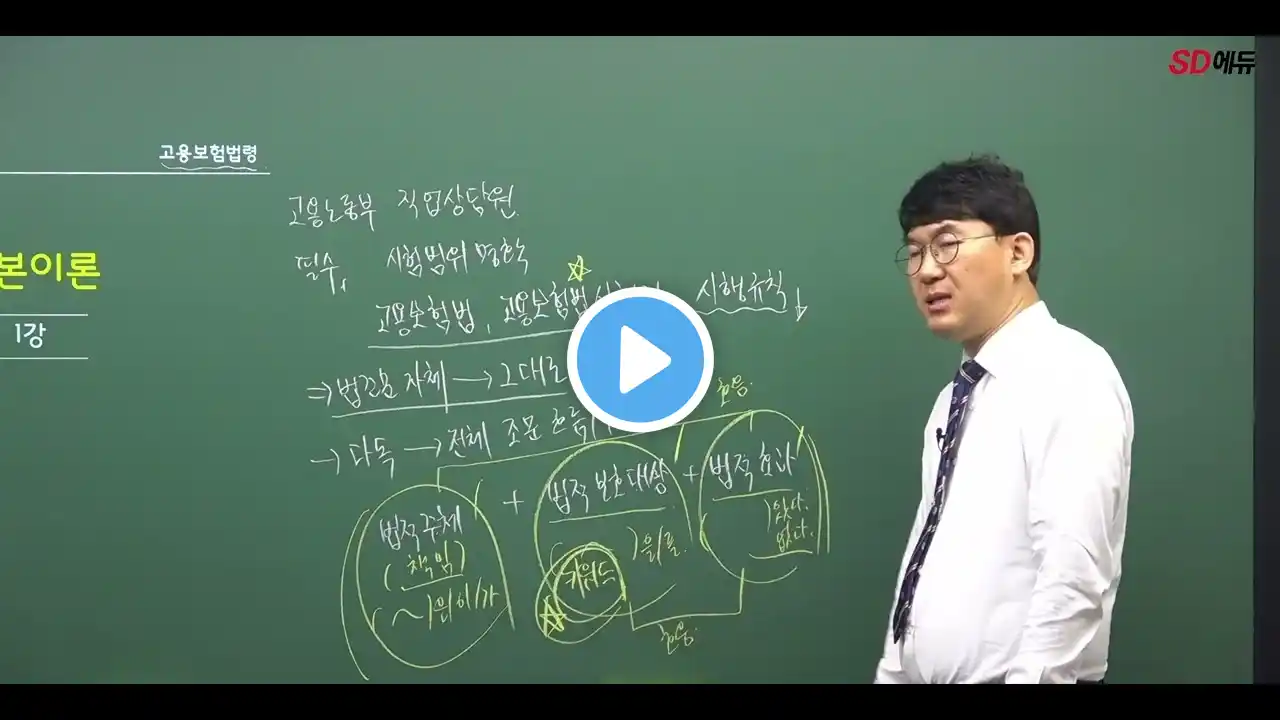 SD에듀
고용보험법령
본이론
1강
고용노동부 직업상담원
필수, 시험범위 명확
고용보험법, 고용보험법 시행규칙
⇒ 법조문 자체 → 그대로
→ 다독 → 전체 조문 흐름
호응.
법적주체 + 법적 보호대상 + 법적 효과
(책임)
~은/이/가
)을/를.
)있다.
없다.
키워드
호응.